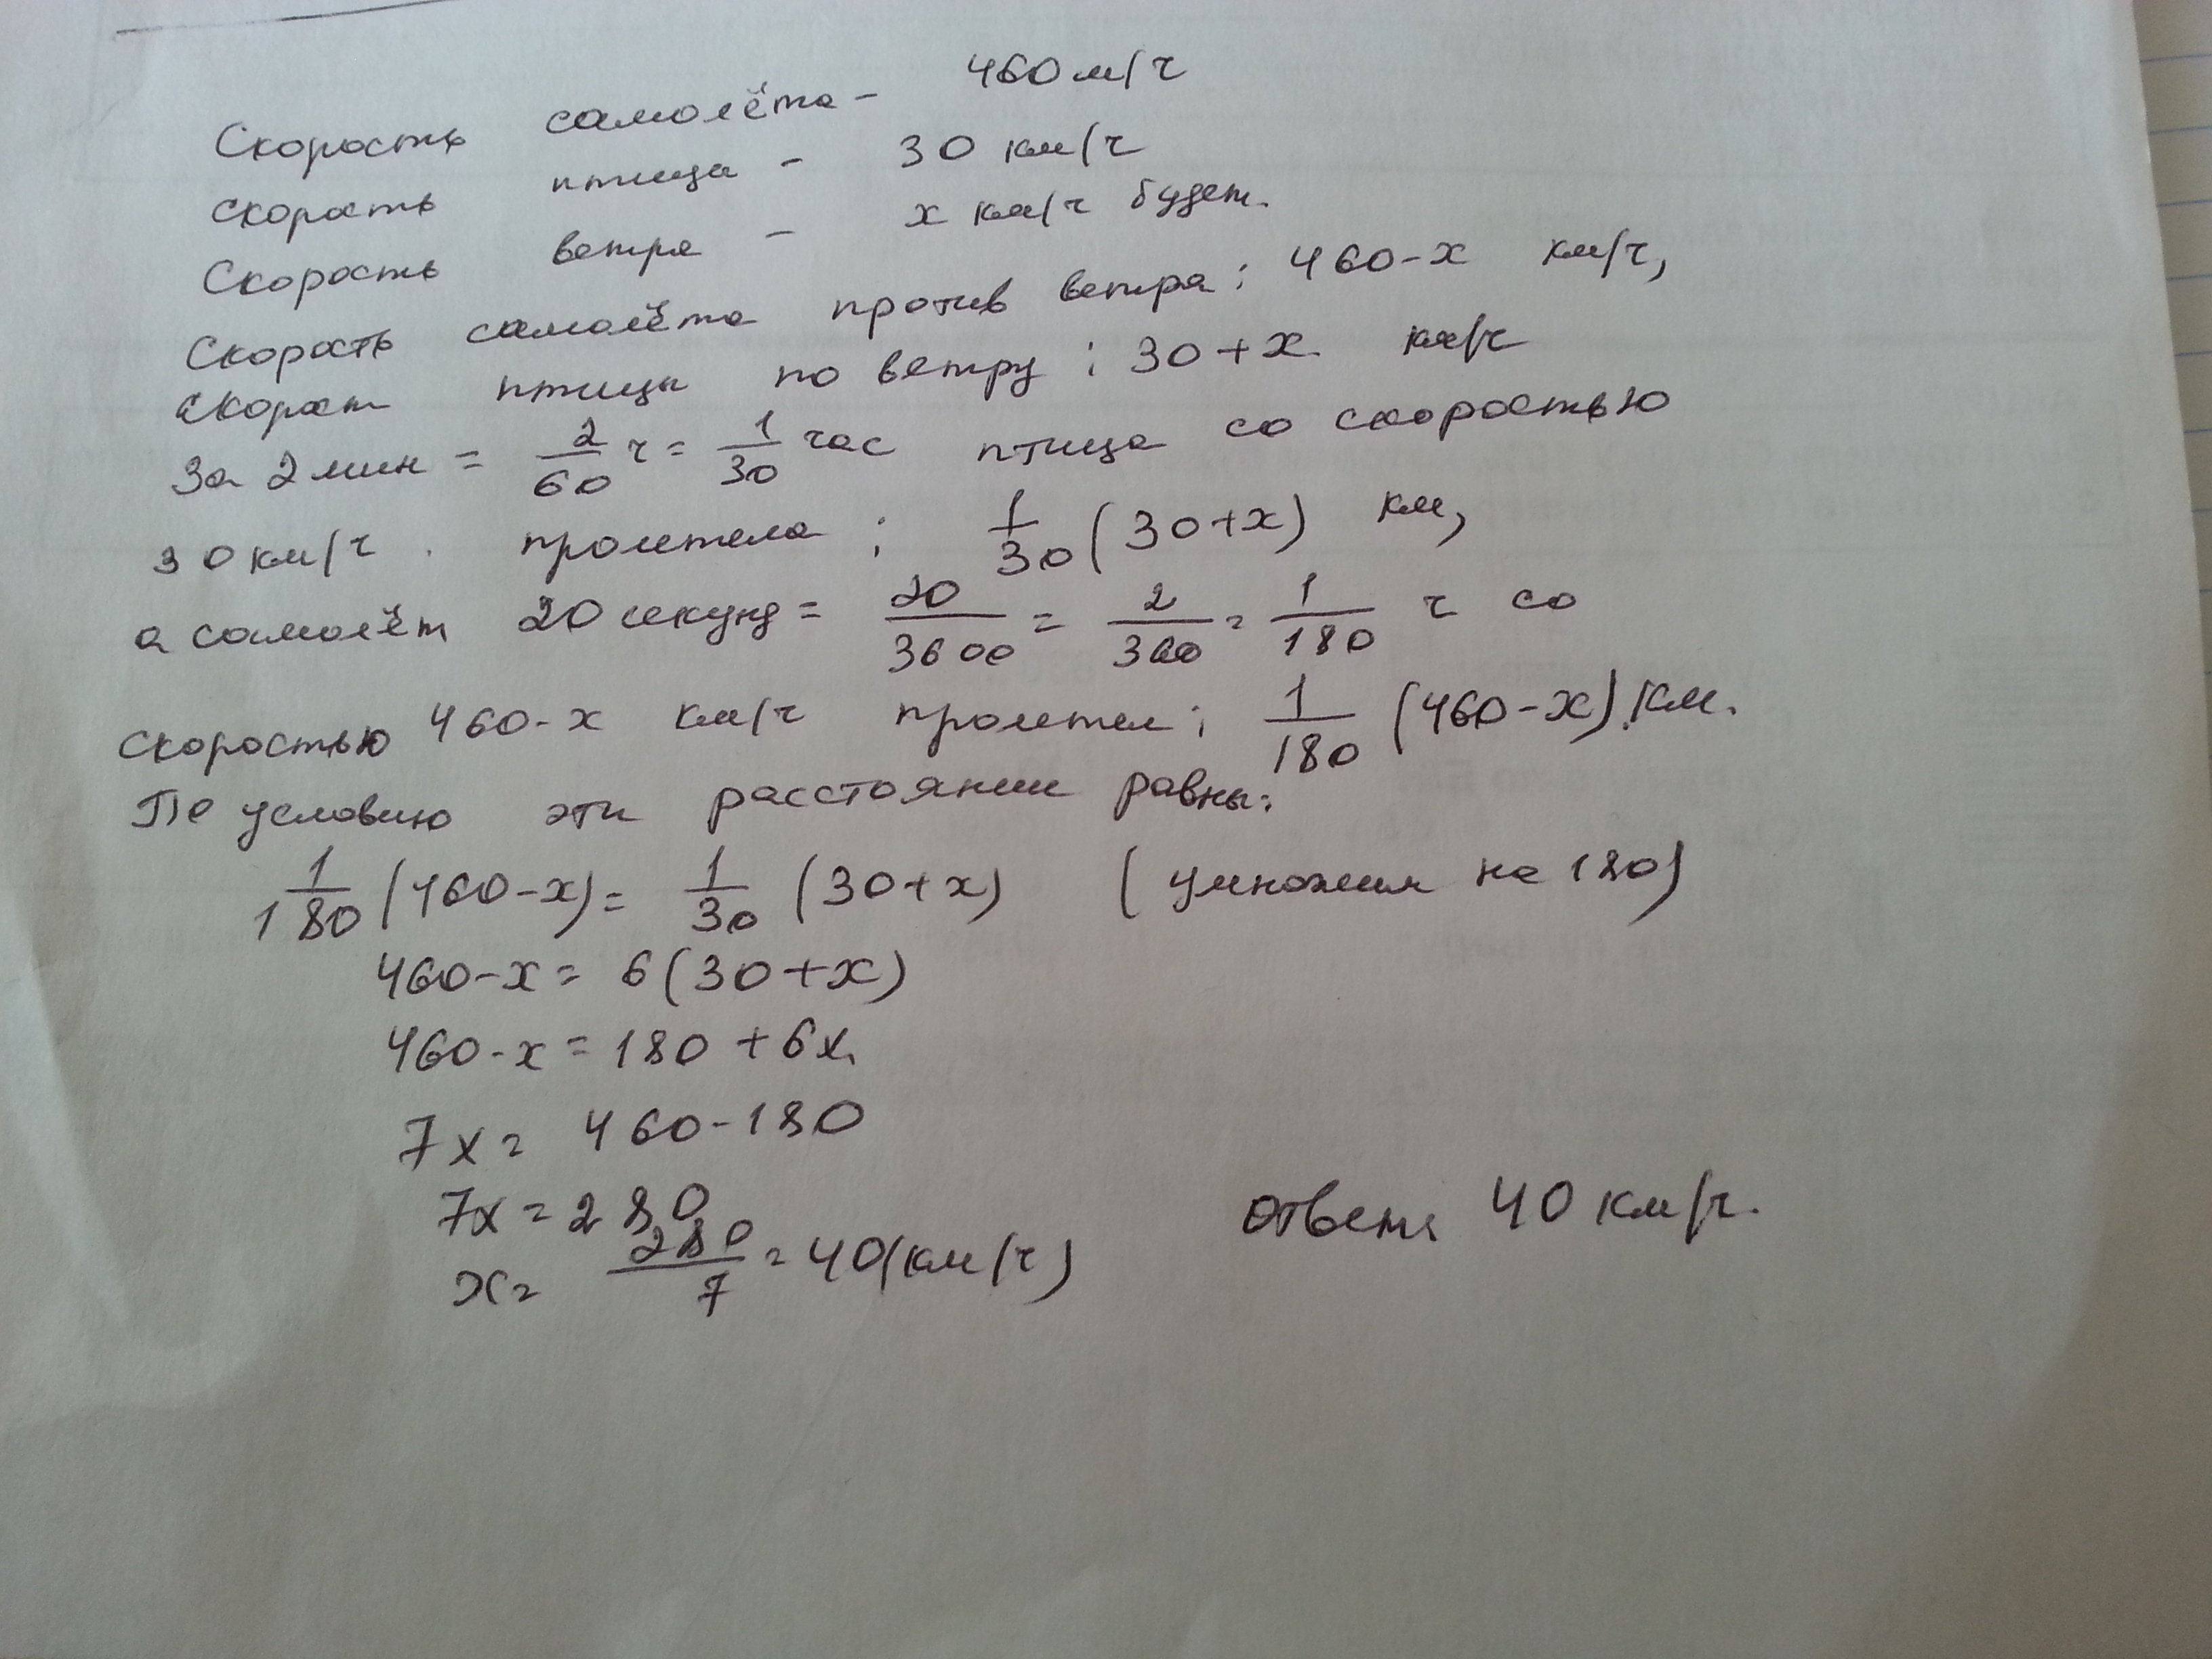 Скорость самолёта - 460 м/ч
скорость птицы - 30 км/ч
Скорость ветра - x км/ч будет.
Скорость самолёта против ветра; 460-x км/ч,
Скорост птицы по ветру; 30+x км/ч
За 2 мин = 2/60 ч = 1/30 час птица со скоростью
30 км/ч. пролетела; 1/30 (30+x) км,
а самолёт 20 секунд = 20/3600 = 2/360 = 1/180 ч со
скоростью 460-x км/ч пролетел; 1/180 (460-x) км.
По условию эти расстояние равны:
1/180 (460-x) = 1/30 (30+x) (умножим на 180)
460-x = 6(30+x)
460-x = 180+6x
7x = 460-180
7x = 280
x = 280/7 = 40 (км/ч)
ответ: 40 км/ч.